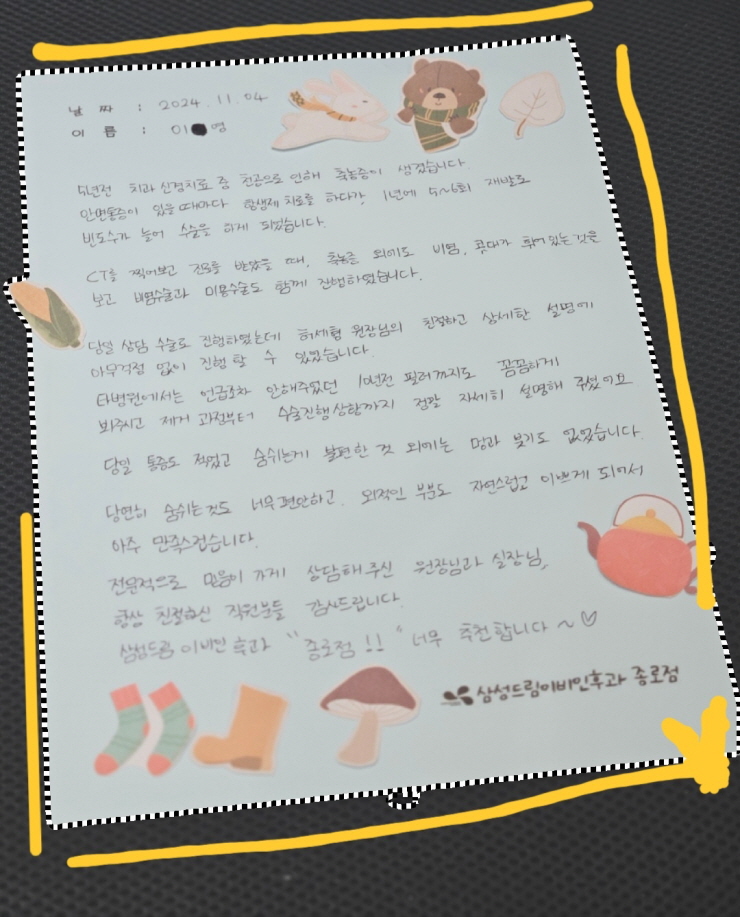 날 짜 : 2024.11.04
이 름 : 이 영
5년전 치과 신경치료 중 천공으로 인해 축농증이 생겼습니다.
안면통증이 있을때마다 항생제 치료를 하다가, 1년에 5~6회 재발도
빈도수가 늘어 수술을 하게 되었습니다.
CT를 찍어보고 진료를 받았을 때, 축농증 외에도 비염, 콧대가 휘어있는 것을
보고 비염수술과 미용수술도 함께 진행하였습니다.
당일 상담 수술로 진행하였는데 허세형 원장님의 친절하고 상세한 설명에
아무걱정 없이 진행 할 수 있었습니다.
타병원에서는 언급조차 안해주었던 10년전 필러까지도 꼼꼼하게
봐주시고 제거 과정부터 수술진행상황까지 정말 자세히 설명해 주셨어요
당일 통증도 적었고 숨쉬는게 불편한 것 외에는 멍과 붓기도 없었습니다.
당연히 숨쉬는것도 너무편안하고, 외적인 부분도 자연스럽고 이쁘게 되어서
아주 만족스럽습니다.
전문적으로 믿음이 가게 상담해주신 원장님과 실장님,
항상 친절하신 직원분들 감사드립니다.
삼성드림이비인후과 "종로점!!" 너무 추천합니다 ~ ♡
삼성드림이비인후과 종로점